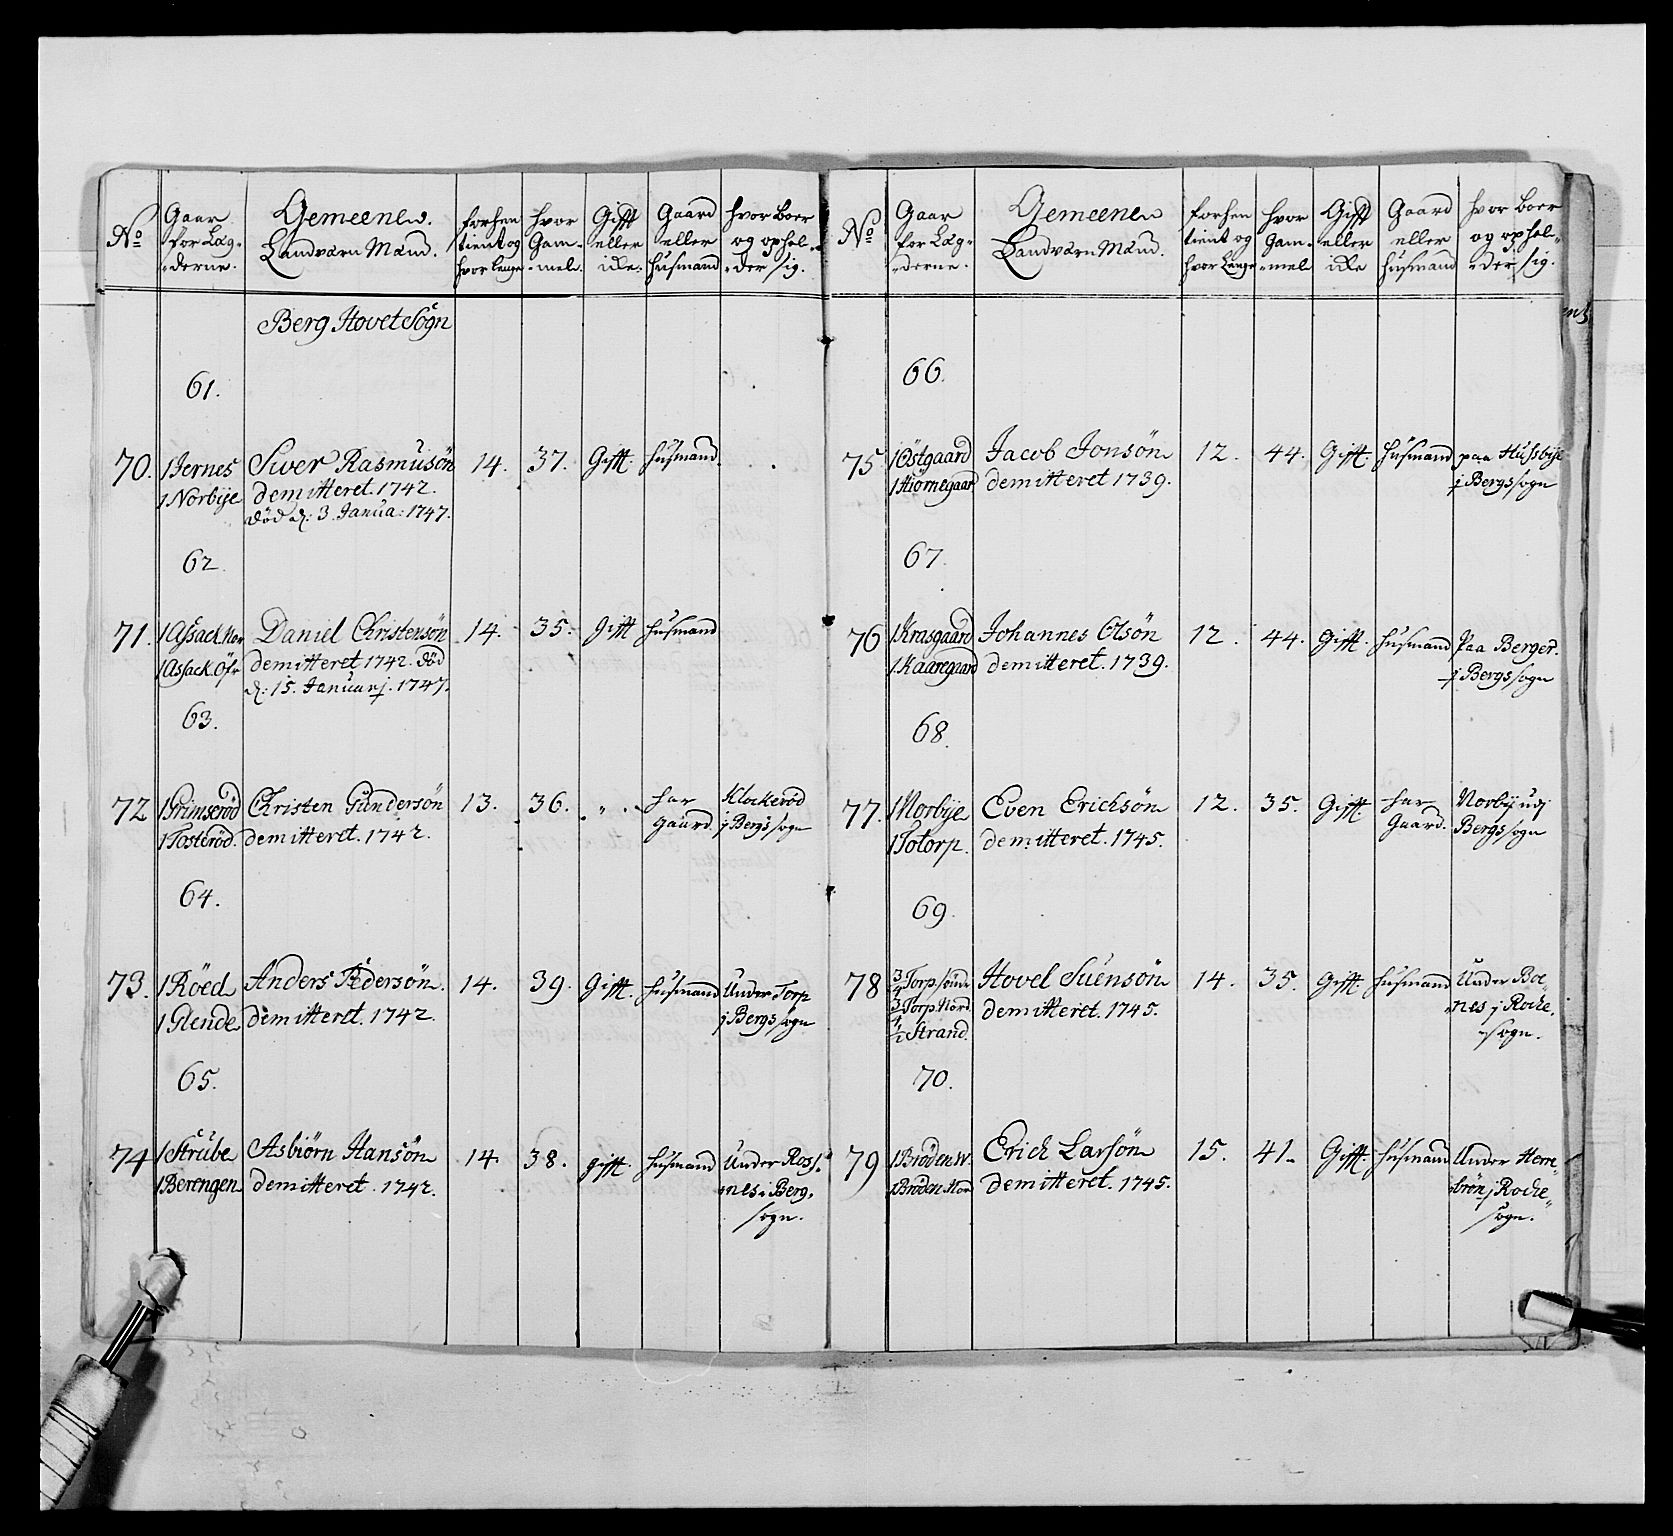 No
Gaar
for Læg-
derne.
Gemeene
Landværn Mænd.
forhen
tient og
hvor lenge
hvor
Gam-
mel.
Gifft
eller
icke.
Gaard
eller
Husmand
hvor Boer
og ophol-
der sig.
Berg Hovet Sogn
61.
70.
1 Jernes
1 Norbye
Siver Rasmusön
demitteret. 1742.
död d: 3 Janua: 1747.
14.
37.
Gifft
Husmand.
62.
71.
1 Assack Nor
1 Assack Öf
Daniel Christensön
demitteret 1742. död
d: 15. Januarj. 1747.
14.
35.
gifft
Husmand
63.
72
1 Grimseröd
1 Tosteröd.
Christen Gundersön
demitteret. 1742.
13.
36.
"
har
Gaard
Klockeröd
j Bergs sogn
64.
73.
1 Röed
1 Rende
Anders Pedersön.
demitteret. 1742.
14.
39.
gifft
Husmand
Under Torp
j Bergs sogn
65.
74
1 Strube
1 Berengen
Asbiörn Hansön
demitteret. 1742.
14.
38.
gifft
Husmand
Under Ross-
nes i Berg,
sogn.
No
Gaar
for Læg-
derne.
Gemeene
Landværn Mænd.
forhen
tient og
hvor lenge
hvor
Gam-
mel
Gifft
eller
icke
Gaard
eller
Husmand
hvor Boer
og ophol-
der sig.
66.
75
1 Östgaard
1 Hiörnegaar
Jacob Jonsön
demitteret 1739.
12.
44.
Gifft
Husmand
paa Hussbye
j Bergs sogn
67.
76
1 Krasgaard
1 Kaaregaard
Johannes Olsön
demitteret. 1739.
12.
44.
Gifft
Husmand
Paa Berger.
j Bergs sogn
68.
77.
1 Norbye
1 Totorp.
Even Erichsön
demitteret. 1745.
12.
35.
Gifft
har
Gaard.
Norbye udj
Bergs sogn
69.
78
3/4 Torp sönd
3/4 Torp Nord
1/2 Strand.
Hovel Suensön
demitteret. 1745.
14.
35.
Gifft
Husmand
Under Boe-
nes j Rocke,
sogn.
70.
79
1 Bröden W.
1 Bröden Nor
Erich Larsön
demitteret. 1745.
15.
41.
Gifft
Husmand
Under Herre-
brön j Rocke
sogn.